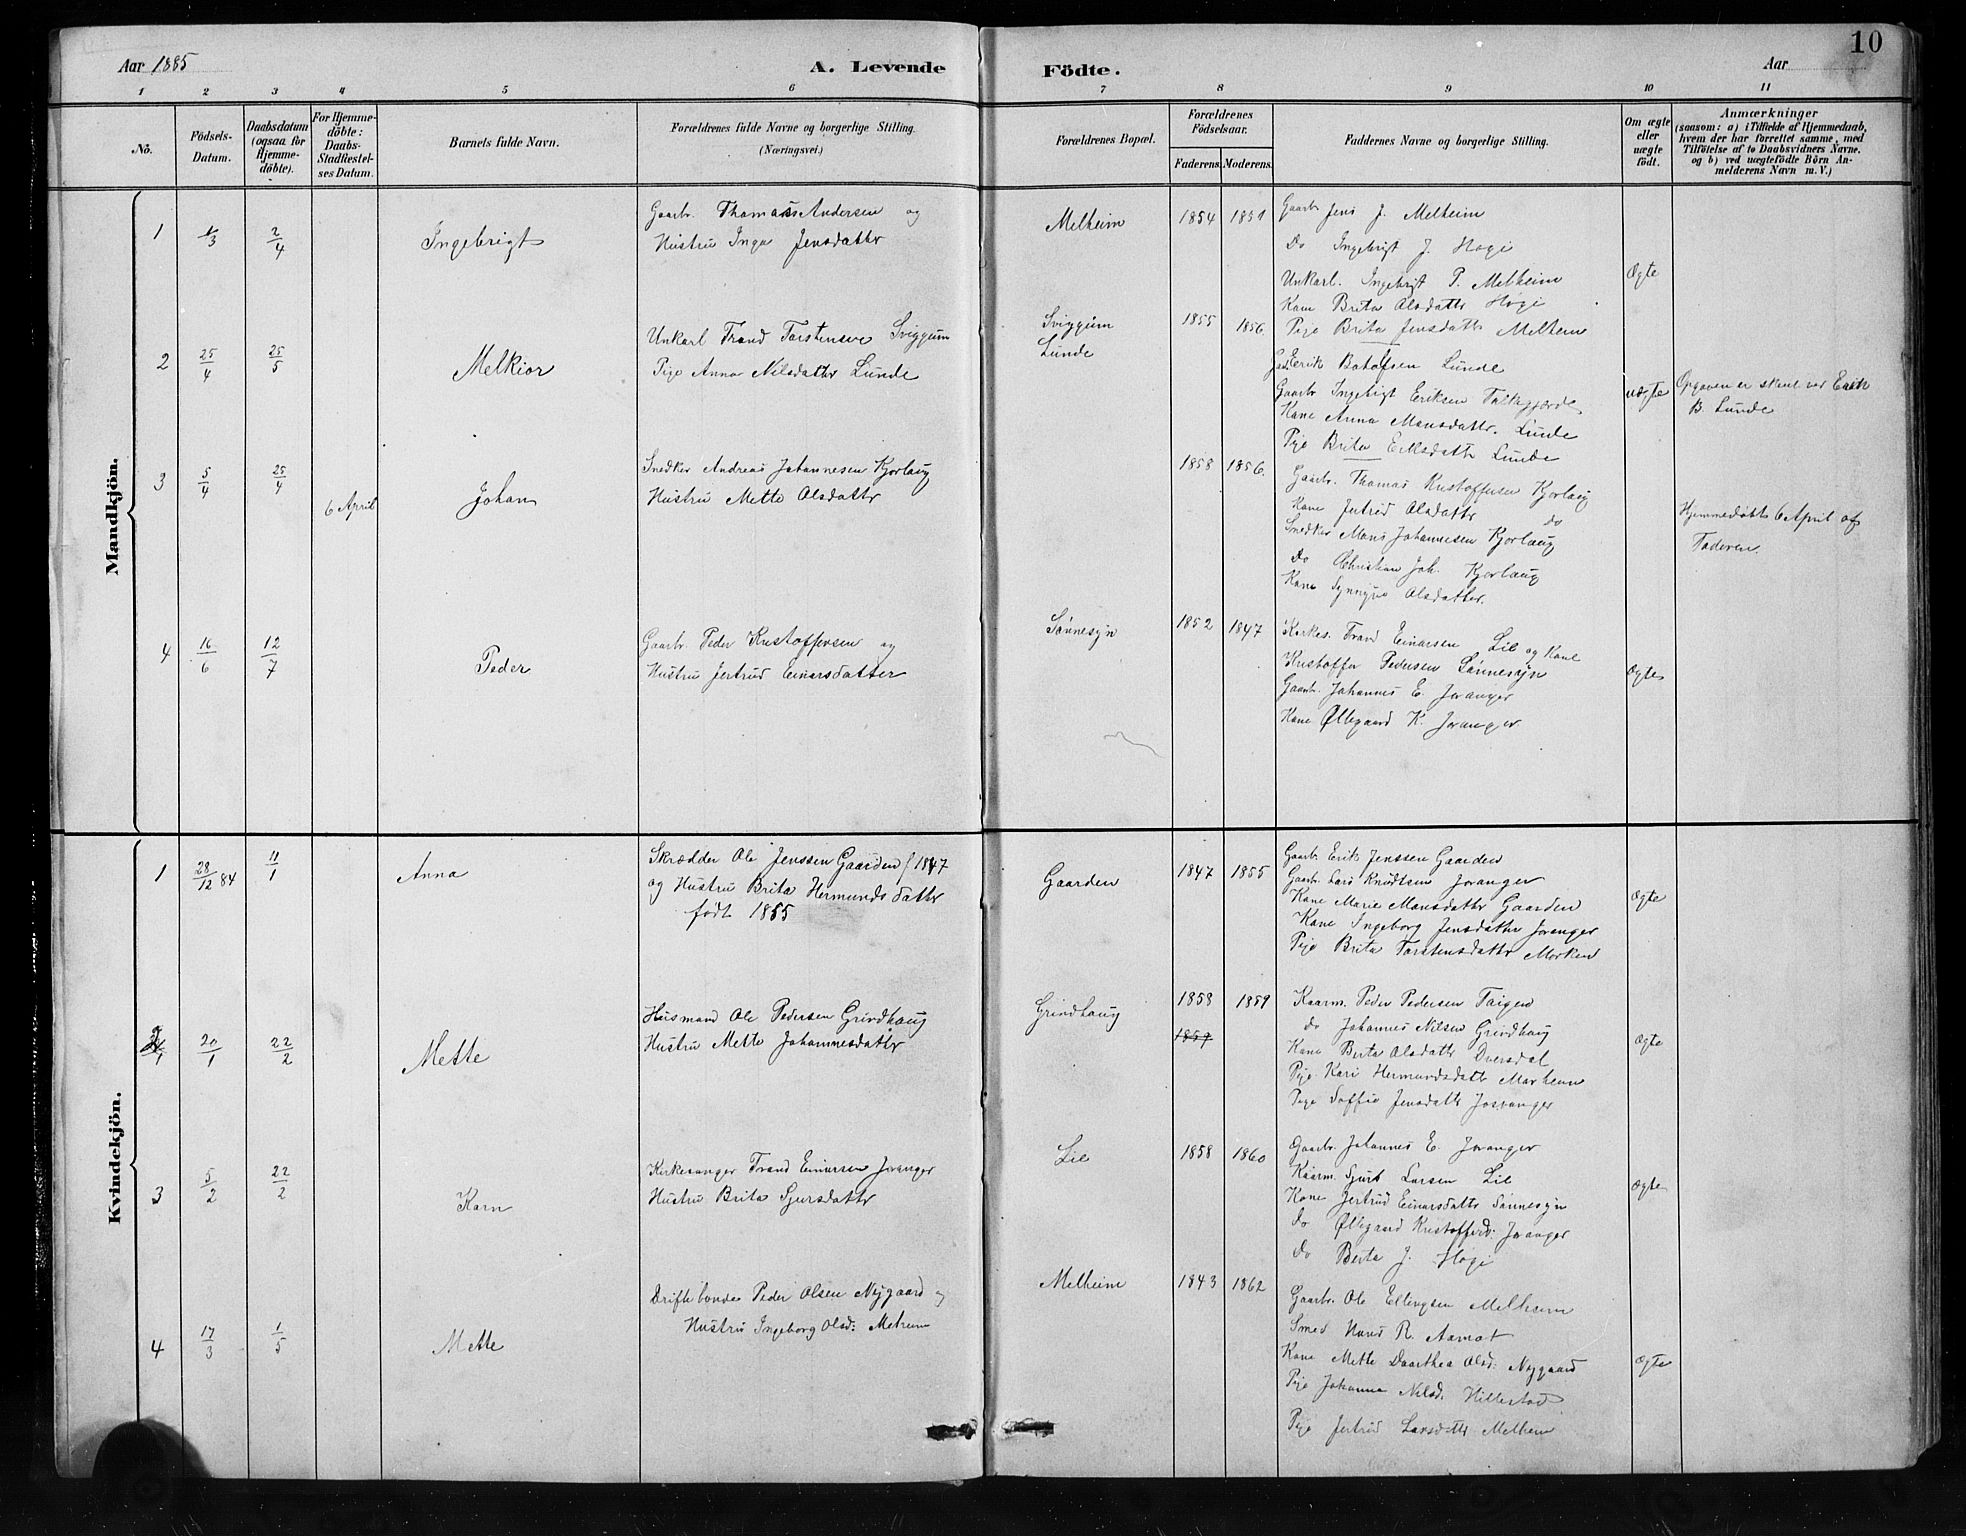 10
Aar 1885
A. Levende
Födte.
Aar
1 2 3 4 5 6 7 8 9 10 11
No.
Födsels-
Datum.
Daabsdatum
(ogsaa for
Hjemme-
döbte).
For Hjemme-
döbte:
Daabs-
Stadfæstel-
ses Datum.
Barnets fulde Navn.
Forældrenes fulde Navne og borgerlige Stilling.
(Næringsvei.)
Forældrenes Bopæl.
Forældrenes
Födselsaar.
Faderens.
Moderens.
Faddernes Navne og borgerlige Stilling.
Om ægte
eller
uægte
födt.
Anmærkninger
(saasom: a) i Tilfælde af Hjemmedaab,
hvem der har forrettet samme, med
Tilföielse af to Daabsvidners Navne.
og b) ved uægtefödte Börn An-
melderens Navn m. V.)
Mandkjön.
1 1/3 2/4 Ingebrigt
Gaarbr. Thomas Andersen og
Hustru Inga Jensdattr
Melheim 1854
Gaarb. Jens J. Melheim
Do Ingebrigt J. Høgi
Unkarl. Ingebrigt P. Melheim
Kone Brita Olsdattr Høgi
Pige Brita Jensdattr Melheim
Ægte
2 25/4 25/5 Melkior
Unkarl Trond Torstensen Sviggum
Pige Anna Nilsdattr Lunde
Sviggum
Lunde
1855 1856
Erik Botolfsen Lunde
Gaarb. Ingebrigt Eriksen
Kone Anna Monsdattr. Lunde
Pige Brita Eriksdattr Lunde
uægte
Opgaven er skent ved Erik
B. Lunde
3 5/4 25/4 6 April Johan
Snedker Andreas Johannesen Kjorlaug
Hustru Mette Olsdattr
1858 1856.
Gaarbr. Thomas Kristoffersen Kjorlaug
Kone Jertrud Olsdattr do
Snedker Mons Johannesen Kjorlaug
Do Christian Joh. Kjorlaug
Kone Synnyve Olsdatter.
Hjemmedøbt 6 April af
Faderen.
4 16/6 12/7 Peder
Gaarbr. Peder Kristoffersen og
Hustru Jertrud Einarsdatter
Sønnesyn 1852 1847
Kirkes. Trond Einarsen Lie og Kone
Kristoffer Pedersen Sønnesyn
Gaarb. Johannes E. Joranger
Kone Øllegaard K. Joranger
Ægte
Kvindekjön.
1 28/12 84 11/1 Anna
Skrædder Ole Jenssen Gaarden f 1847
og Hustru Brita Hermundsdattr
født 1855
Gaarden 1847 1855
Gaarb. Erik Jenssen Gaarden
Gaarb. Lars Knudtsen Joranger
Kone Marie Monsdattr Gaarden
Kone Ingeborg Jensdattr Joranger
Pige Brita Torstensdattr Morken
Ægte
2 20/1 22/2 Mette
Husmand Ole Pedersen Grindhaug
Hustru Mette Johannesdattr
Grindhaug 1858 1859
1859
Kaarm. Peder Pedersen Taigen
Do Johannes Nilsen Grindhaug
Kone Berta Olsdattr Dversdal
Pige. Kari Hermundsdattr Marheim
Pige Soffie Jensdattr Josranger
Ægte
3 5/2 22/2 Karn
Kirkesanger Trond Einarsen Joranger
Hustru Brita Sjursdattr
Lie 1858 1860
Gaarbr. Johannes E. Joranger
Kaarm. Sjurd Larsen Lie
Kone Jertrud Einarsdattr Sønnesyn
do Øllegaard Kristofferd. Joranger
do Berta J. Høgi
Ægte
4 17/3 1/5 Mette
Driftebonde Peder Olsen Nygaard og
Hustru Ingeborg Olsd:
Melheim 1843 1862
Gaarbr. Ole Ellingsen Melheim
Smed Hans R. Aamot
Kone Mette Daarthea Olsd: Nygaard
Pige Johanna Nilsd. Hillestad
Pige Jertrud Larsdattr Melheim
Ægte